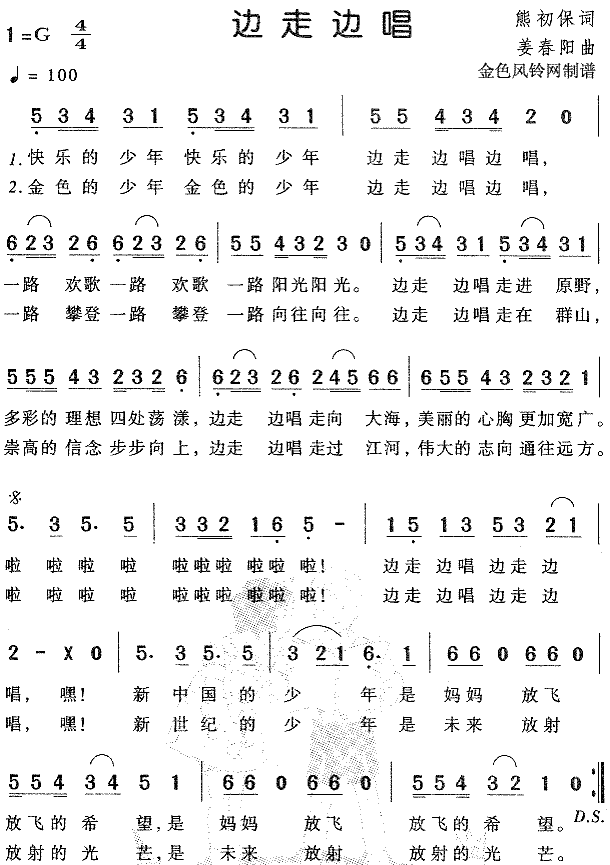 边走边唱
1=G 4/4
♩= 100
熊初保词
姜春阳曲
金色风铃网制谱
5 3 4 3 1 5 3 4 3 1 | 5 5 4 3 4 2 0 |
1.快乐的 少年 快乐的 少年 边走 边唱边 唱,
2.金色的 少年 金色的 少年 边走 边唱边 唱,
6 2 3 2 6 6 2 3 2 6 | 5 5 4 3 2 3 0 | 5 3 4 3 1 5 3 4 3 1 |
一路 欢歌 一路 欢歌 一路 阳光阳光。 边走 边唱 走进 原野,
一路 攀登 一路 攀登 一路 向往向往。 边走 边唱 走在 群山,
5 5 5 4 3 2 3 2 6 | 6 2 3 2 6 2 4 5 6 6 | 6 5 5 4 3 2 3 2 1 |
多彩的 理想 四处荡 漾, 边走 边唱 走向 大海, 美丽的 心胸 更加宽 广。
崇高的 信念 步步向 上, 边走 边唱 走过 江河, 伟大的 志向 通往远 方。
5. 3 5. 5 | 3 3 2 1 6 5 - | 1 5 1 3 5 3 2 1 |
啦 啦 啦 啦 啦啦啦 啦啦 啦! 边走 边唱 边走 边
啦 啦 啦 啦 啦啦啦 啦啦 啦! 边走 边唱 边走 边
2 - X 0 | 5. 3 5. 5 | 3 2 1 6. 1 | 6 6 0 6 6 0 |
唱, 嘿! 新 中 国 的 少 年 是 妈妈 放飞
唱, 嘿! 新 世 纪 的 少 年 是 未来 放射
5 5 4 3 4 5 1 | 6 6 0 6 6 0 | 5 5 4 3 2 1 0 :||
放飞的 希 望, 是 妈妈 放飞 放飞的 希 望。
D.S.
放射的 光 芒, 是 未来 放射 放射的 光 芒。